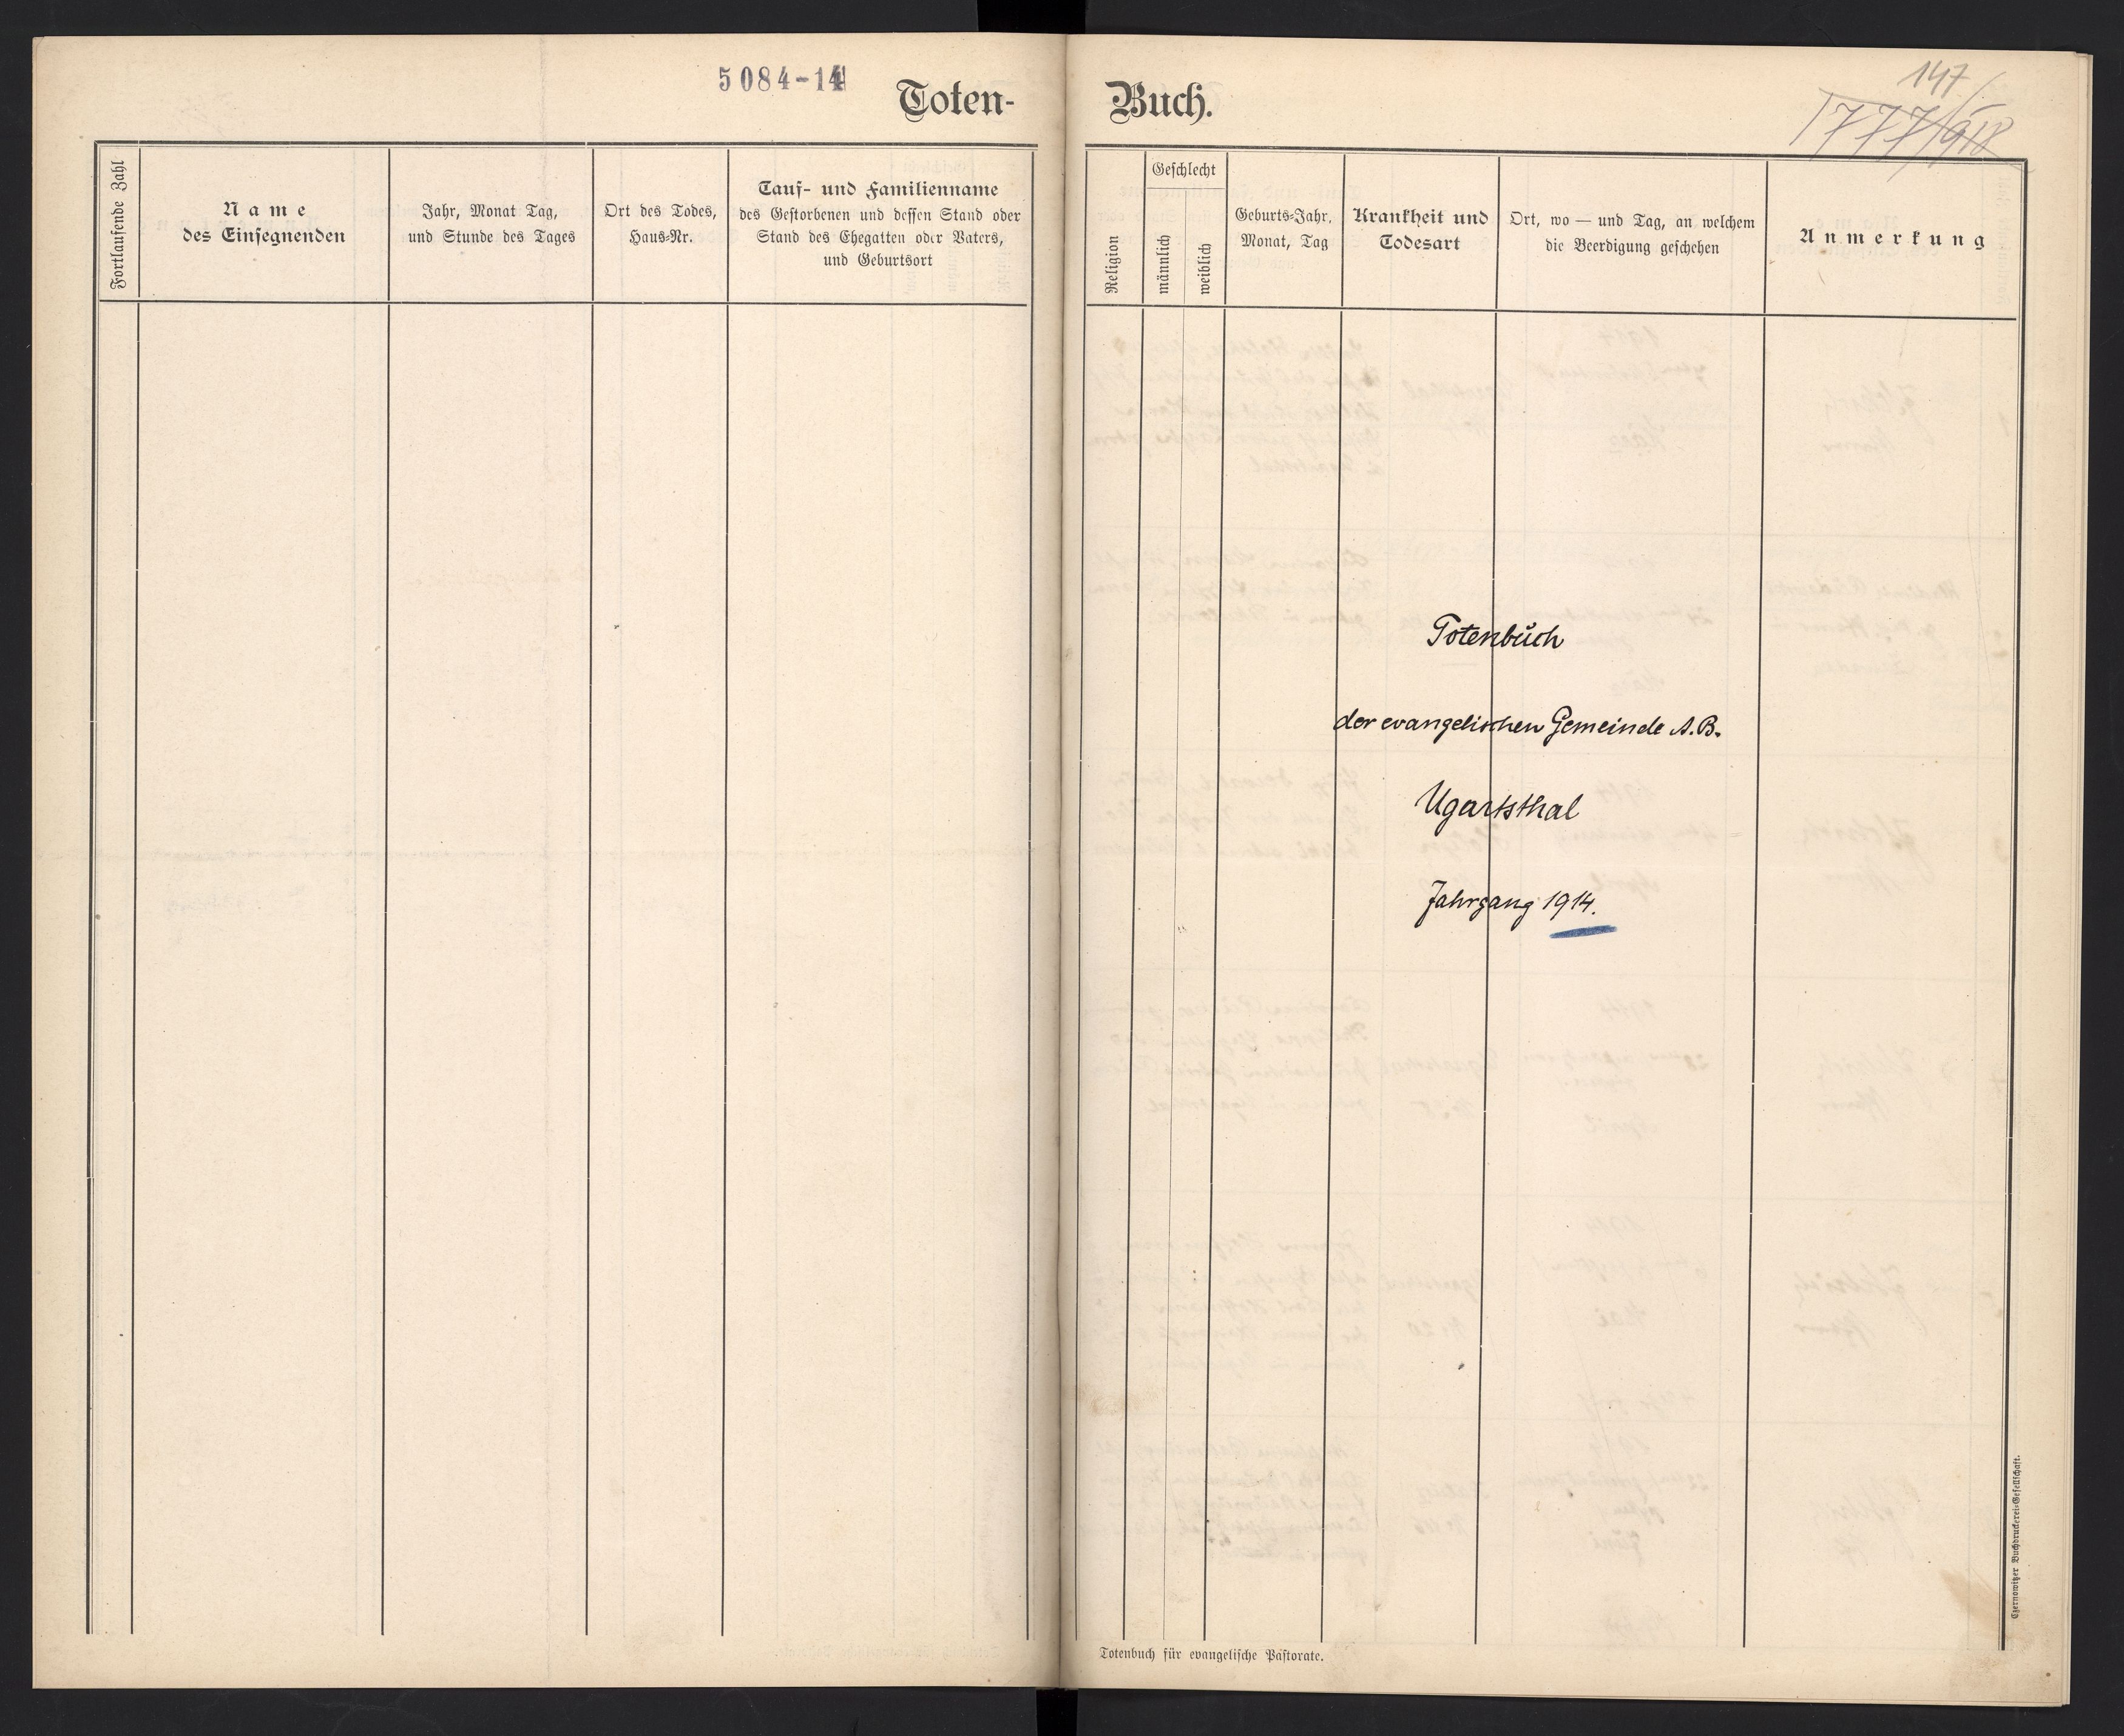 5084-14
Toten-
Fortlaufende Zahl
Name
des Einsegnenden
Jahr, Monat Tag,
und Stunde des Tages
Ort des Todes,
Haus-Nr.
Tauf- und Familienname
des Gestorbenen und dessen Stand oder
Stand des Ehegatten oder Vaters,
und Geburtsort
147
1777/918
Buch.
Religion
Geschlecht
männlich
weiblich
Geburts-Jahr,
Monat, Tag
Krankheit und
Todesart
Ort, wo — und Tag, an welchem
die Beerdigung geschehen
Anmerkung
Totenbuch
der evangelischen Gemeinde A.B.
Ugartsthal
Jahrgang 1914.
Totenbuch für evangelische Pastorate.
Czernowitzer Buchdruckerei-Gesellschaft.